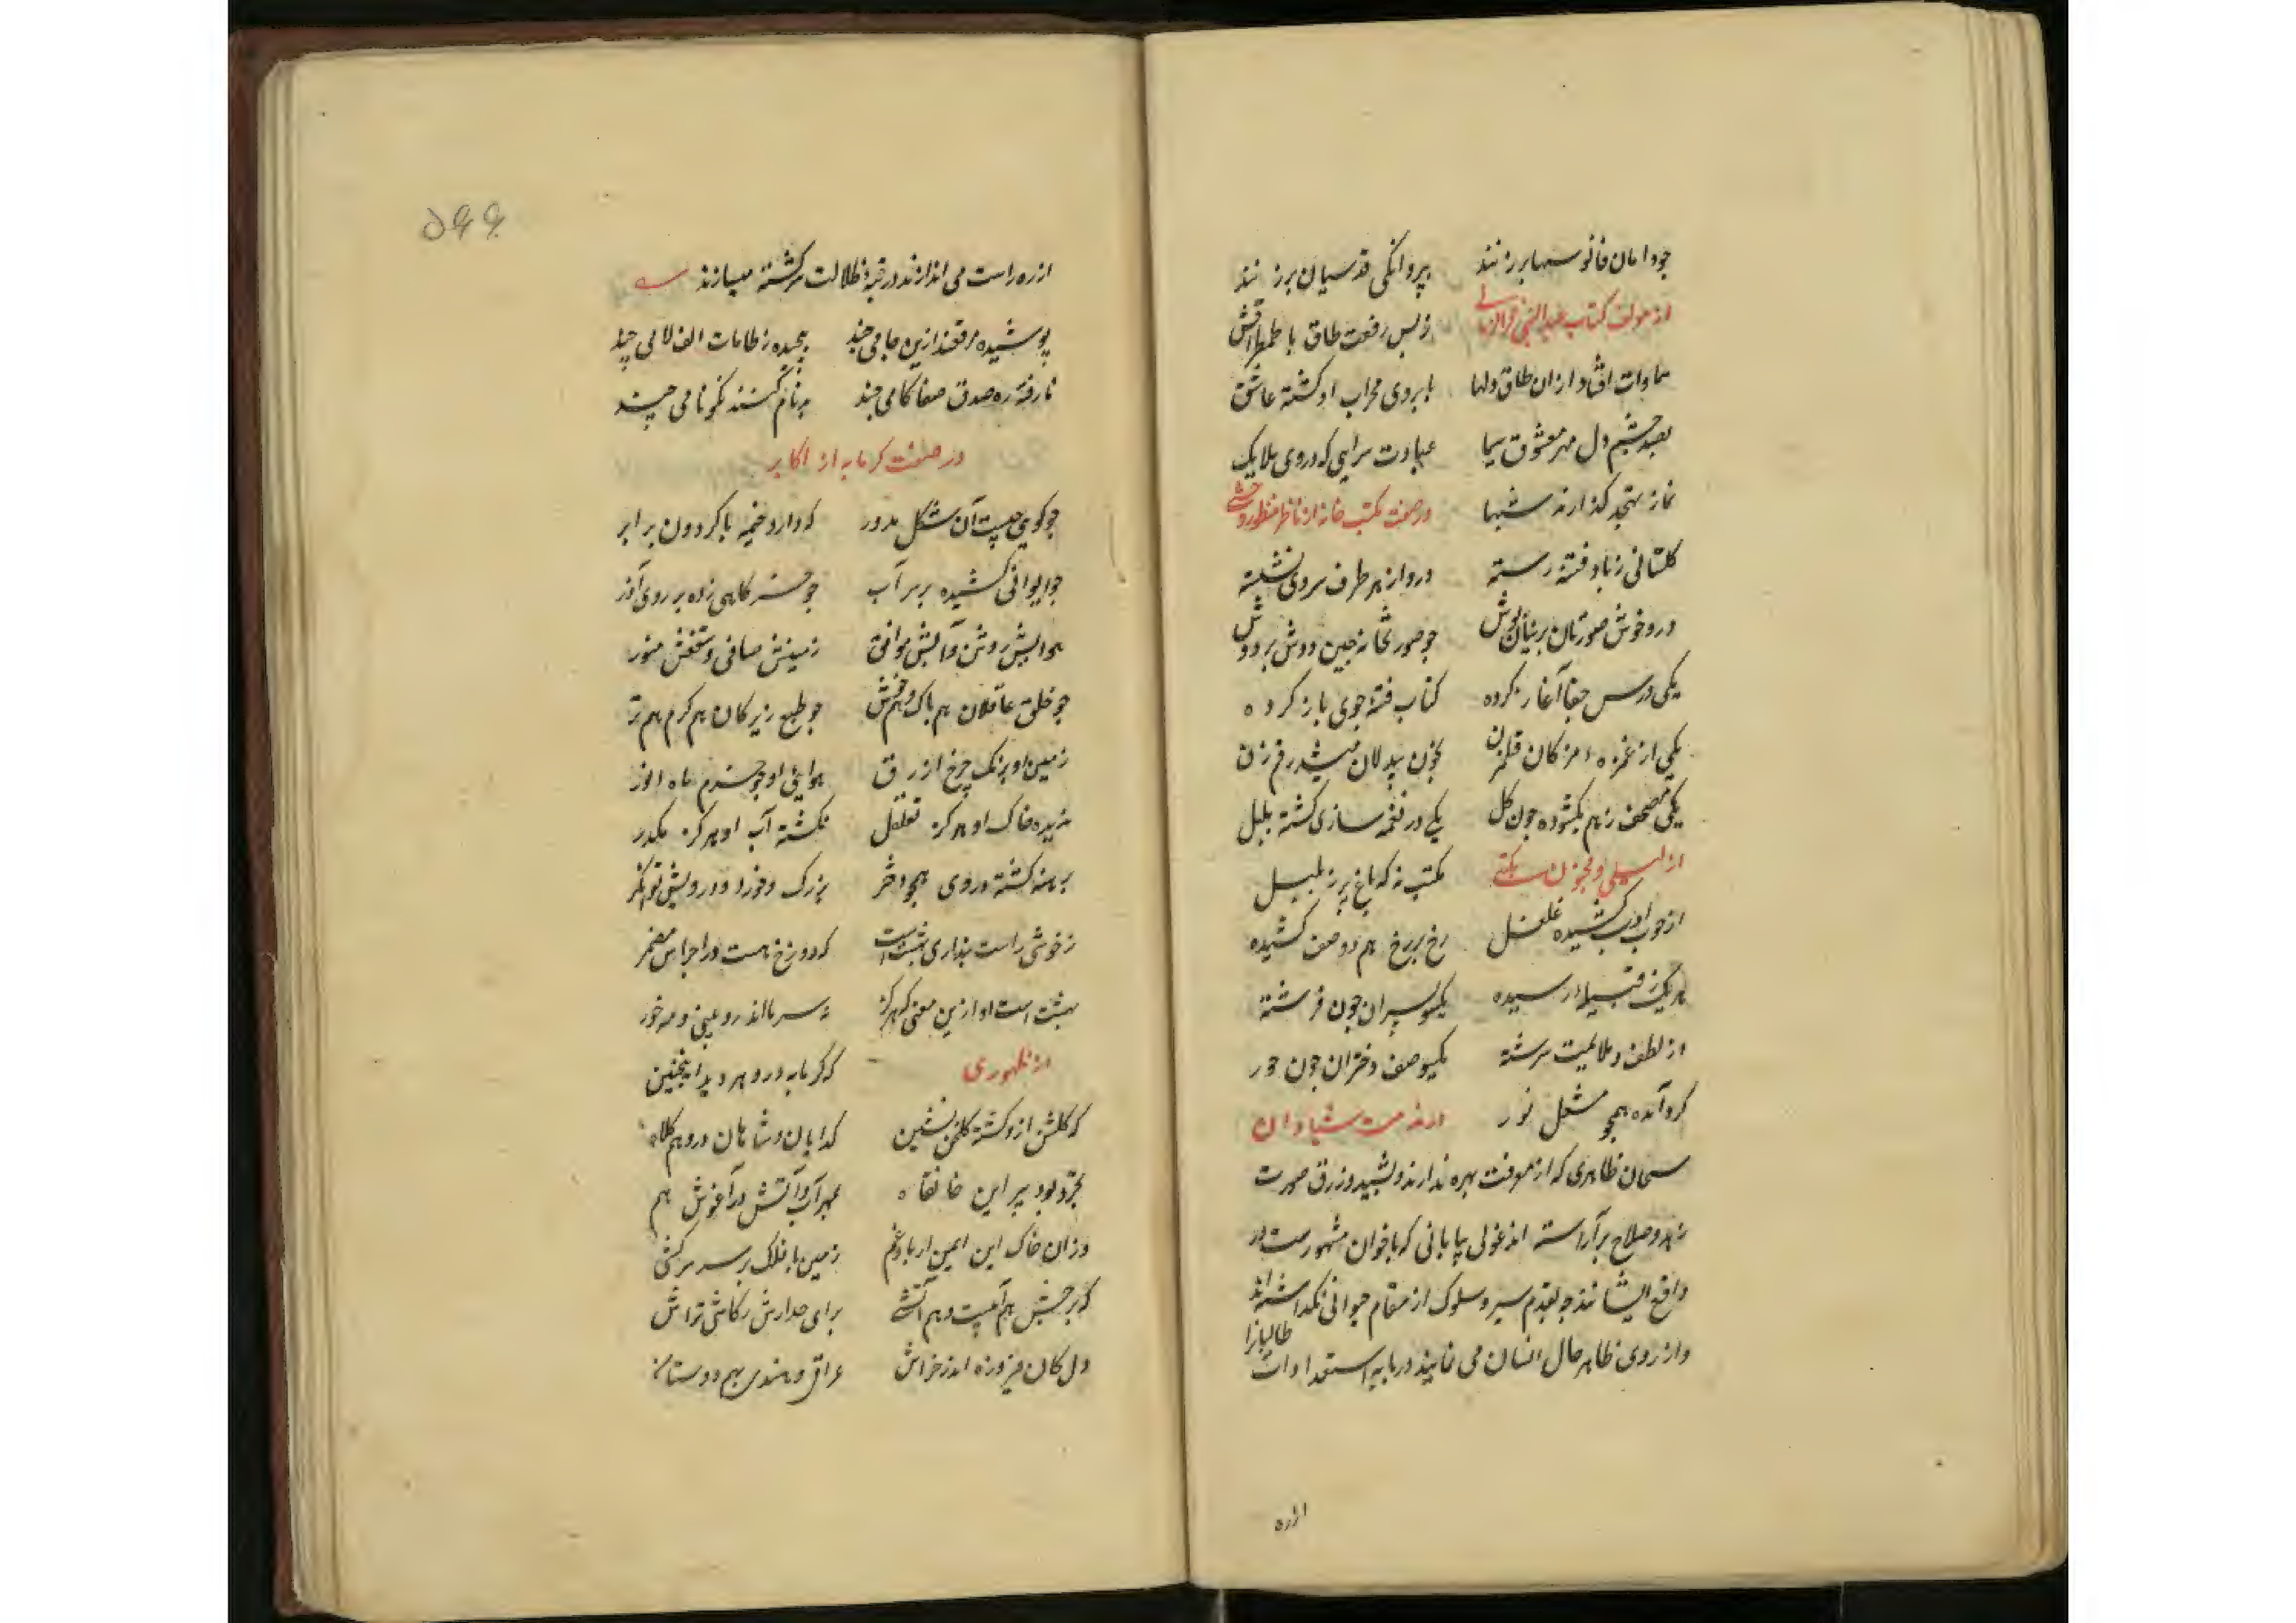 چو دامان فانوسها بر زنند پروانگی قدسیان پر زنند
از مولف کتاب عبدالنبی فخرالزمانی ز بس رفعت طاق با طمطراقش
سماوات افتاد از ان طاق دلها بابروی محراب او کشته عاشق
بصد چشم دل مهر معشوق سیما عبادت سرایی که در وی ملایک
نماز تهجد کذارند شبها در صفت مکتب خانه از ناظر منظور وحشی
کلستانی ز باد فتنه رسته درو از هر طرف سروی نشسته
درو خوش صورتان پرنیان پوش چو صورتخانه چین دوش بر دوش
یکی درس جفا آغاز کرده کتاب فتنه جوی باز کرده
یکی از غمزه مژکان قلمزن بخون بیدلان میشد رقم زن
یکی مصحف ز هم بکشوده چون کل یکی در نغمه سازی کشته بلبل
از لیلی و مجنون مکتبی مکتب نه که باغ پر ز بلبل
از حرف ادب کشیده غلغل رخ بر رخ هم دو صف کشیده
هر یک ز قبیله رسیده یکسو پسران چون فرشته
از لطف و ملایمت سرشته یکسو صف دختران چون حور
کرد آمده همچو مشعل نور در مذمت شیادان
سمان ظاهری که از معرفت بهره ندارند و بشید و زرق صورت
زهد و صلاح برآراسته اند غولی بیابانی که باخوان مشهورست در
واقع ایشانند چو بقدم سیر و سلوک از مقام حیوانی نکذاشته اند
و از روی ظاهر حال انسان می نمایند در بابه استعدادات طالبانرا
ازره
۵۴۴
ازره راست می اندازند در تیه ضلالت سرکشته میسازند
پوشیده مرقعند ازین خامی چند پیچیده ز طامات الف لامی چند
نارفته ره صدق صفا کامی چند بدنام کنند نکونامی چند
در صفت کرمابه از اکابر
چو کویی چیست آن شکل مدور که دارد خیمه با کردون برابر
چو ایوانی کشیده بر سر آب چو خرکاهی زده بر روی آذر
هوایش روشن و آبش موافق زمینش صافی و سقفش منور
چو خلق عاقلان هم پاک و هم خوش چو طبع زیرکان هم کرم هم تر
زمین او برنک چرخ ازرق هوایی او چو جرم ماه انور
ندیده خاک او هرکز تقلقل نکشته آب او هرکز مکدر
برهنه کشته در وی همچو محشر بزرک و خورد و درویش توانکر
ز خوشی راست پنداری بهشت است که دوزخ هست در اجزاش مضمر
بهشت است او ازین معنی که هرکز نه سرما اندرو بینی و نه خور
از ظهوری که کرمابه در دهر دید اینچنین
که کلشن ازو کشته کلخن نشین کدایان و شاهان درو هم کلاه
تجرد بود پیر این خانقاه بمهر آب و آتش در آغوش هم
وزان خاک این ایمن ار باد و غم زمین با فلک بر سر سرکشی
که بر جنبش هم آبیست و هم آتشی برای جدارش ز کاشی تراش
دل کان فیروزه اندر خراش عراقی و هندی بهم دوستان